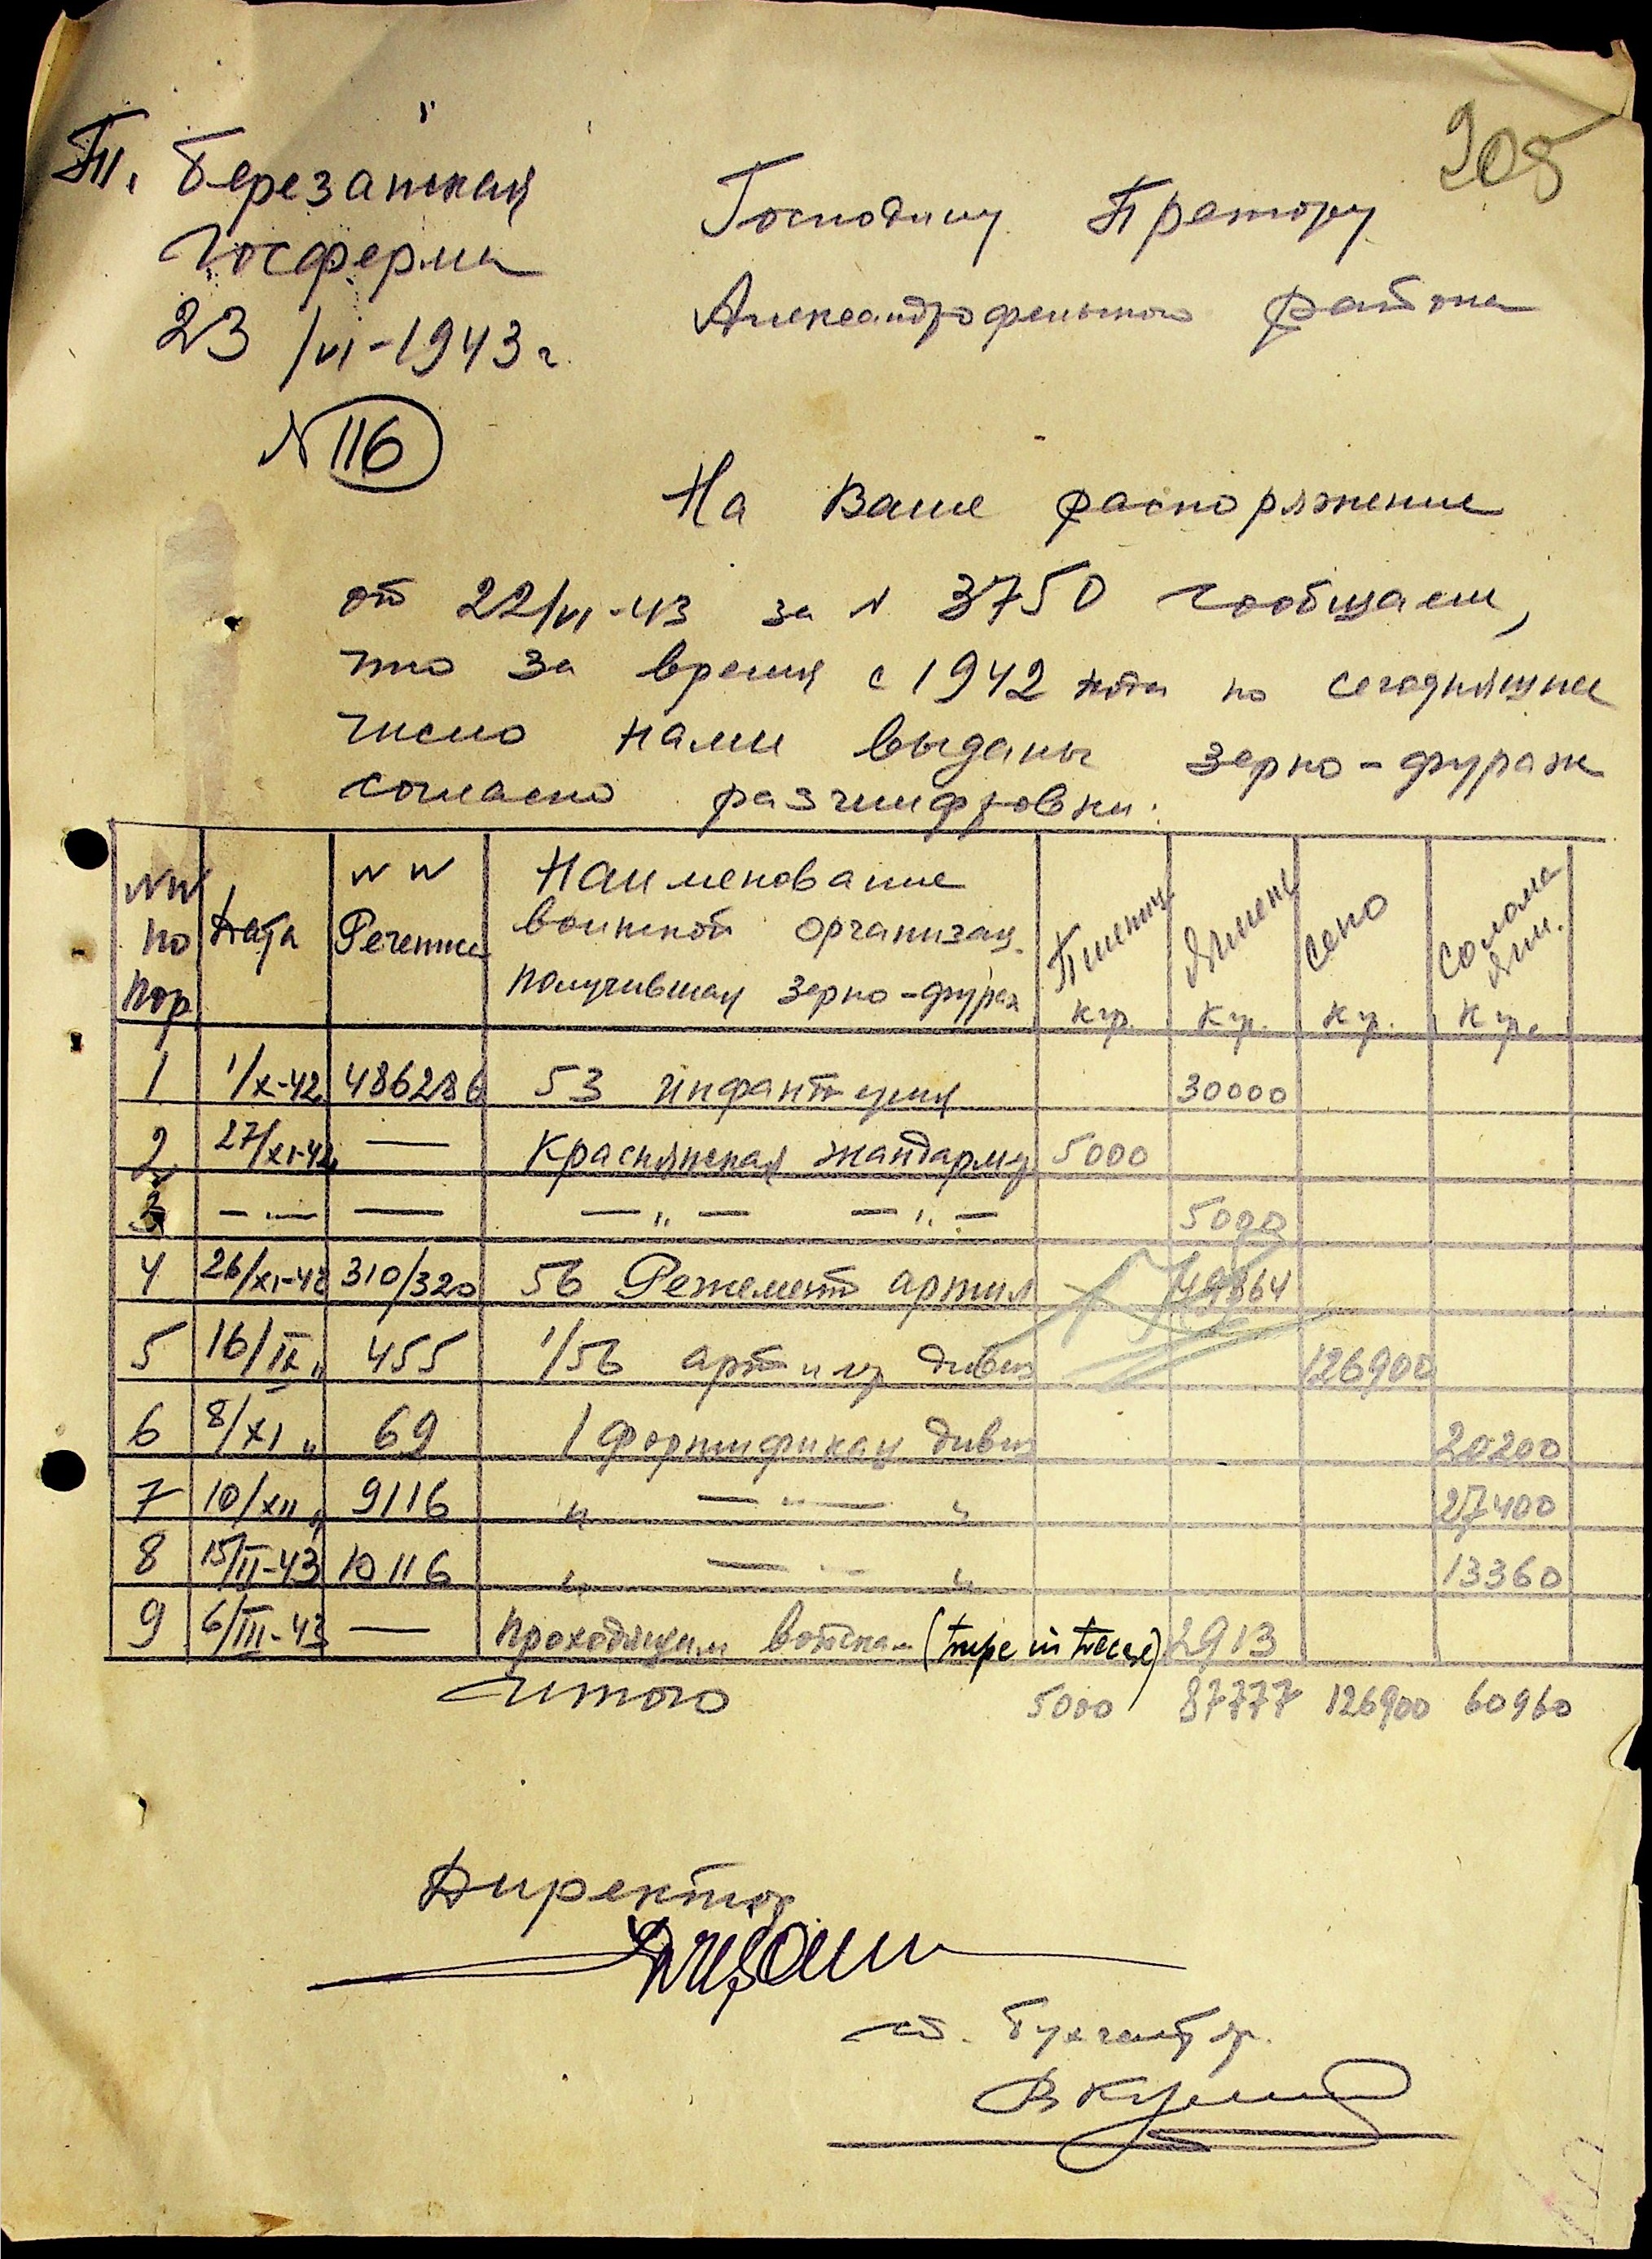 205
Т. Березанская
Госферма
23/VI-1943 г.
N 116
Господину Претору
Александрофельского района
На Ваше распоряжение
от 22/VI-43 за N 3750 сообщаем,
что за время с 1942 года по сегодняшнее
число нами выданы зерно-фураж
согласно разшифровки:
NN по пор | Дата | NN Рецеписа | Наименование воинской организац. получившая зерно-фураж | Пшениц кгр. | Ячмень кгр. | Сено кгр. | Солома ячм. кгр.
1 | 1/X-42 | 486286 | 53 инфантерия | | 30000
2 | 27/XI-42 | — | Краснянская жандарму | 5000
3 | — " — | — | — " — — " — | | 5000
4 | 26/XI-42 | 310/320 | 56 Режемент артил | | 49864
5 | 16/IX " | 455 | 1/56 артилер дивиз | | | 126900
6 | 8/XI " | 69 | 1 фортификац дивиз | | | | 20200
7 | 10/XII " | 9116 | " — " — " | | | | 27400
8 | 15/II-43 | 10116 | " — " — " | | | | 13360
9 | 6/III-43 | — | Проходящим войскам (trupe in trecere) | | 2913
Итого 5000 87777 126900 60960
Директор
ст. Бухгалтер.